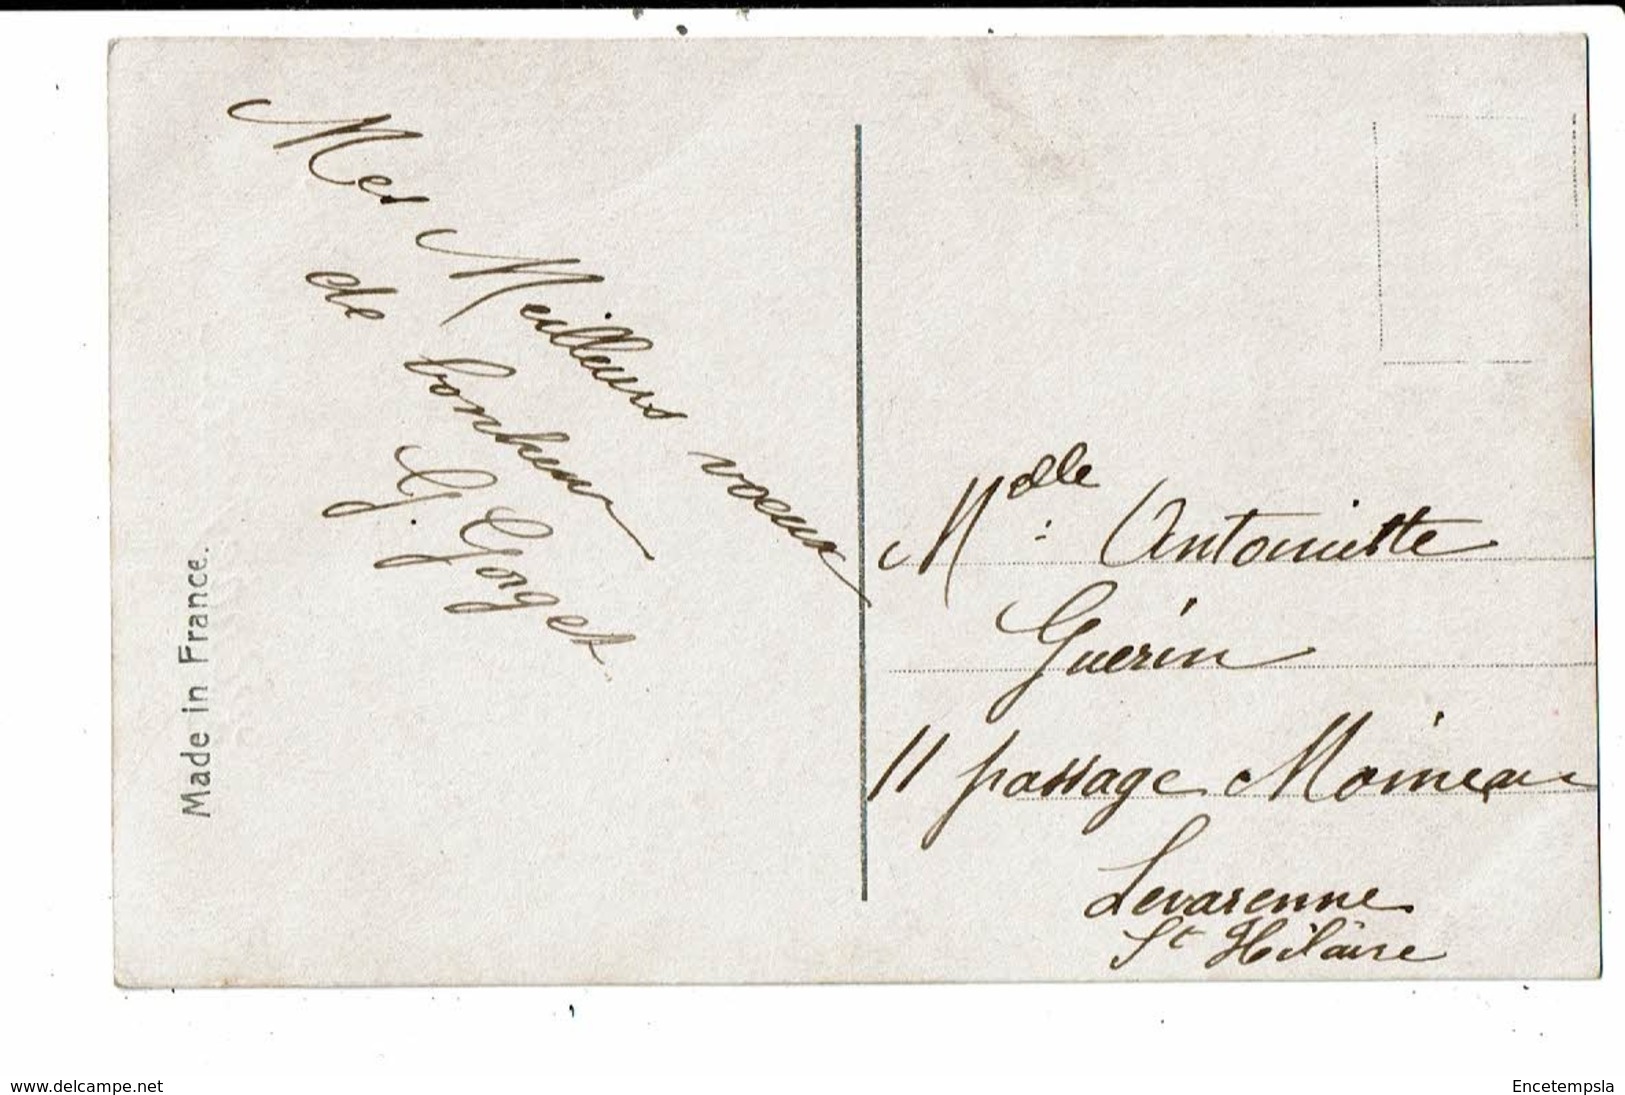 Mes Meilleurs voeux
de bonheur
G. Gorget
Made in France.
Mdlle : Antoinette
Guerin
11 passage Moineau
Levarenne
St Hilaire
www.delcampe.net
Encetempsla